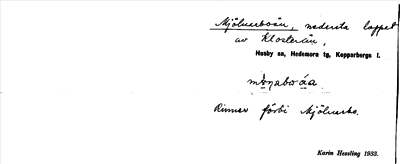 Mjölnerboån, nedersta loppet
av Klosterån,
Husby sn, Hedemora tg, Kopparbergs l.
Rinner förbi Mjölnerbo.
Karin Hessling 1933.